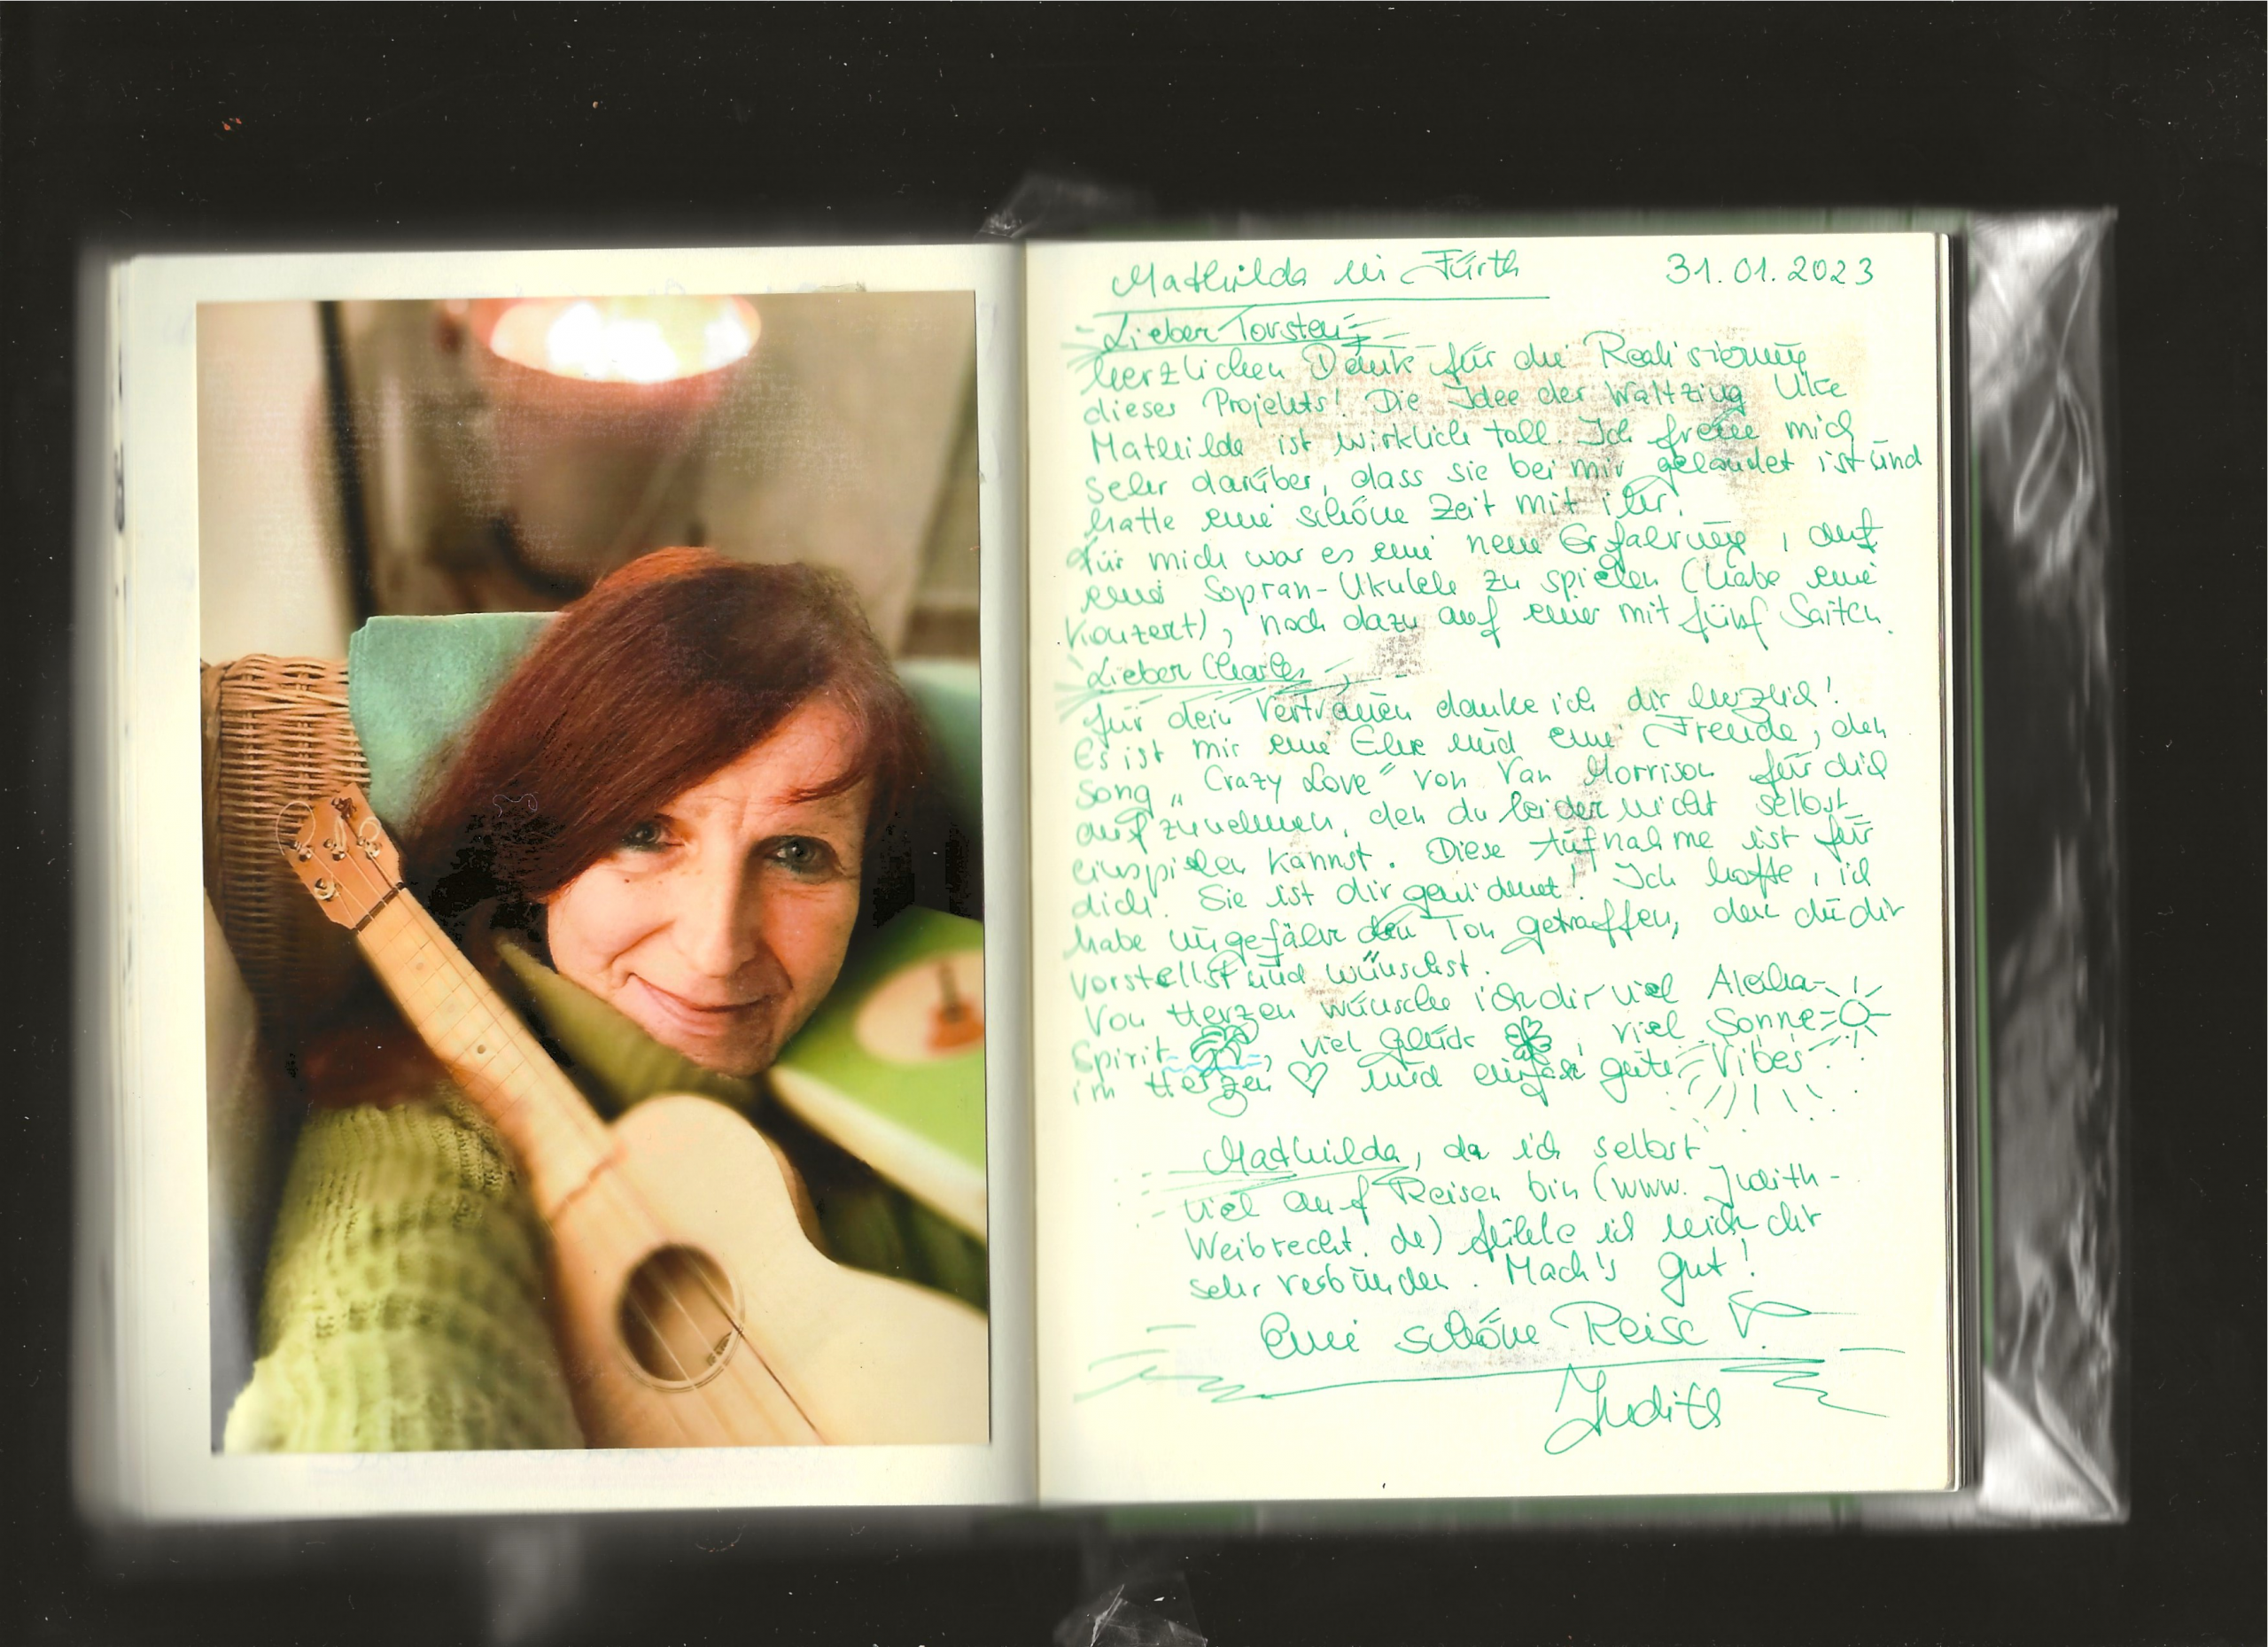 Mathilda in Fürth 31.01.2023
Lieber Torsten,
herzlichen Dank für die Realisierung
dieses Projekts! Die Idee der Waltzing Uke
Mathilde ist wirklich toll. Ich freue mich
sehr darüber, dass sie bei mir gelandet ist und
hatte eine schöne Zeit mit ihr.
Für mich war es eine neue Erfahrung, auf
einer Sopran-Ukulele zu spielen (habe eine
Konzert), noch dazu auf einer mit fünf Saiten.
Lieber Charles,
für dein Vertrauen danke ich dir herzlich!
Es ist mir eine Ehre und eine Freude, den
Song „Crazy Love" von Van Morrison für dich
aufzunehmen, den du leider nicht selbst
einspielen kannst. Diese Aufnahme ist für
dich. Sie ist dir gewidmet! Ich hoffe, ich
habe ungefähr den Ton getroffen, den du dir
vorstellst und wünschst.
Von Herzen wünsche ich dir viel Aloha-
Spirit, viel Glück, viel Sonne
im Herzen und einfach gute Vibes
Mathilda, da ich selbst
viel auf Reisen bin (www.Judith-
Weibrecht.de) fühle ich mich dir
sehr verbunden. Mach's gut!
Eine schöne Reise!
Judith